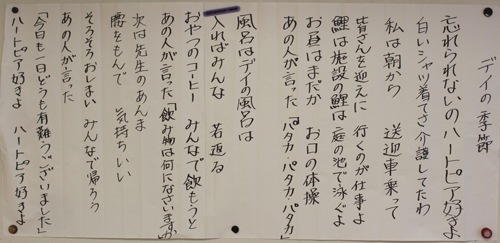 デイの季節
忘れられないの ハートピア好きよ
白いシャツ着てさ 介護してたわ
私は朝から 送迎車乗って
皆さんを迎えに 行くのが仕事よ
鯉は施設の鯉は 庭の池で泳ぐよ
お昼はまだか お口の体操
あの人が言った「パタカ パタカ パタカ」
風呂はデイの風呂は
入ればみんな 若返る
おやつのコーヒー みんなで飲もうと
あの人が言った「飲み物は何になさいますか」
次は先生のあんま
腰をもんで 気持ちいい
そろそろおしまい みんなで帰ろう
あの人が言った
「今日も一日どうも有難うございました」
ハートピア好きよ ハートピア好きよ